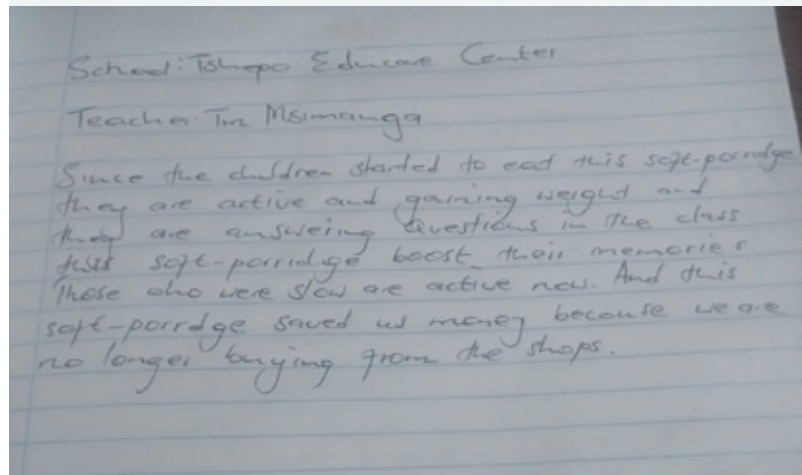 School: Tshepo Educare Center
Teacher: Msimanga
Since the children started to eat this soft-porridge
they are active and gaining weight and
they are answering Questions in the class
this soft-porridge boost their memories
Those who were slow are active now. And this
soft-porrdge saved us money because we are
no longer buying from the shops.